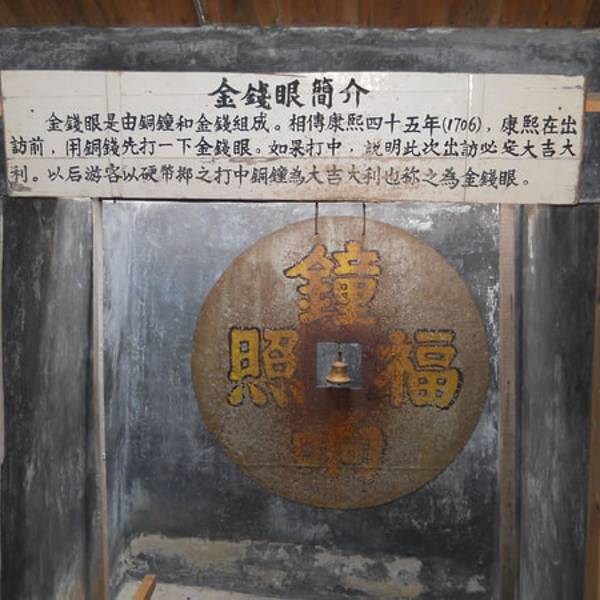 金錢眼簡介
金錢眼是由銅鐘和金錢組成。相傳康熙四十五年(1706)，康熙在出
訪前，用銅錢先打一下金錢眼。如果打中，説明此次出訪必定大吉大
利。以后游客以硬幣擲之打中銅鐘為大吉大利也称之為金錢眼。
鐘
照 福
响